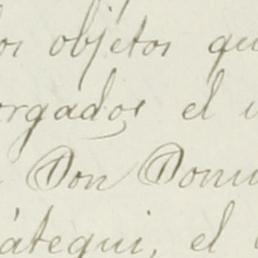 los objetos qu
orgados el
Don Domi
átegui, el